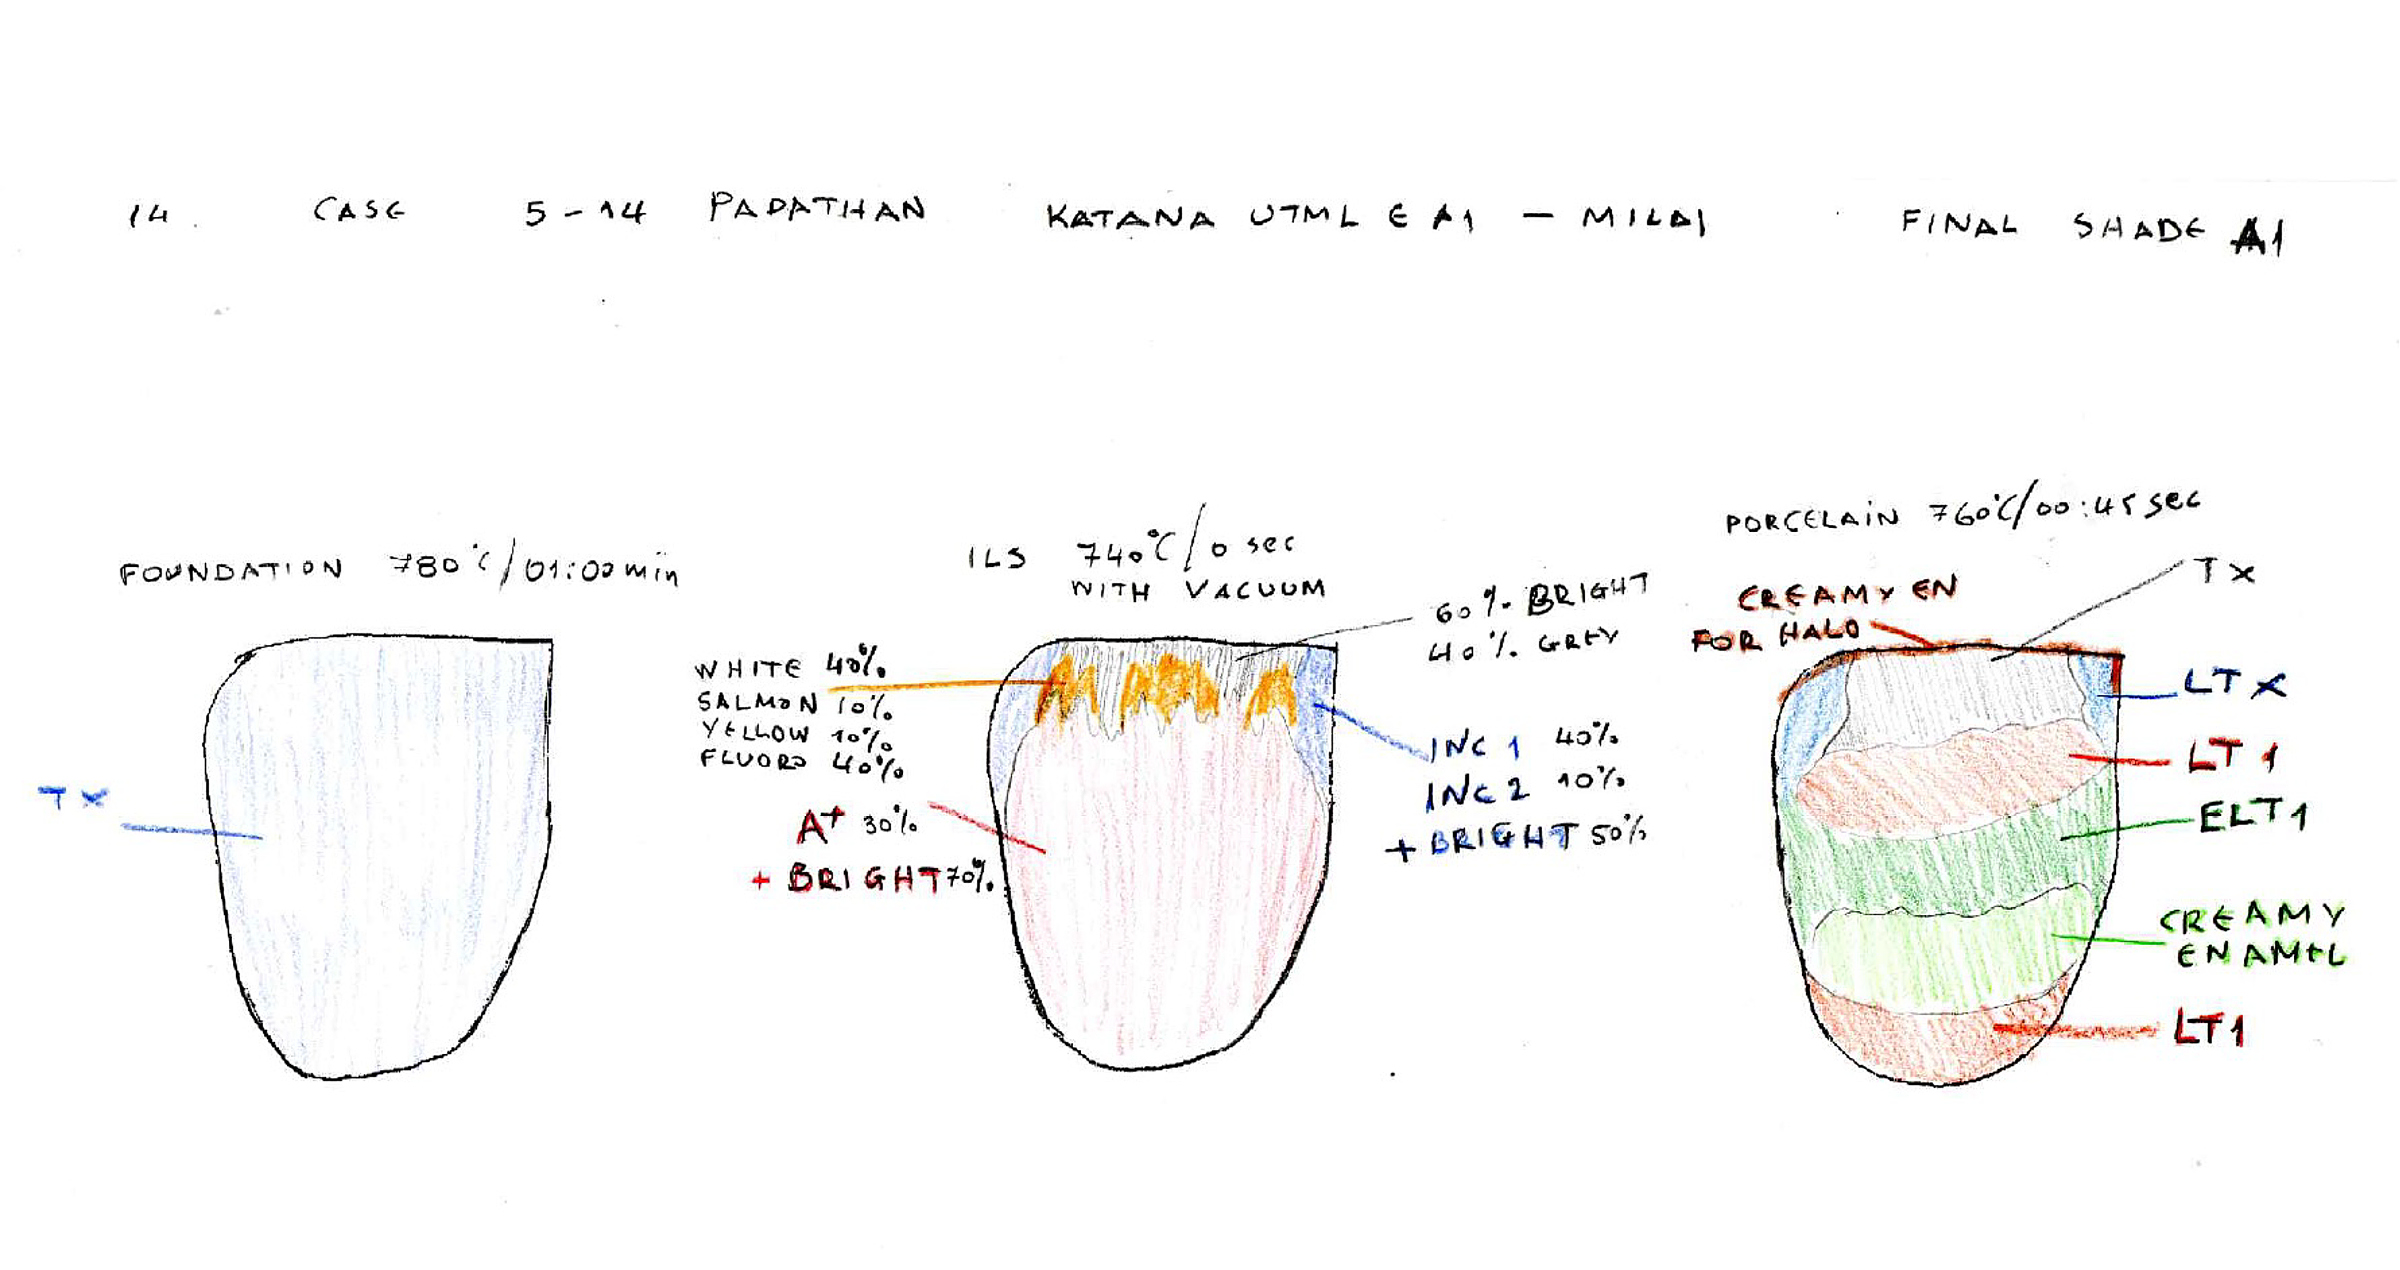 14. CASE 5-14 PAPATHAN KATANA UTML E A1 - MILAI FINAL SHADE A1
FOUNDATION 780°C/01:00min
TX
ILS 740°C/0 sec
WITH VACUUM
WHITE 40%
SALMON 10%
YELLOW 10%
FLUORO 40%
A+ 30%
+ BRIGHT 70%
60% BRIGHT
40% GREY
INC 1 40%
INC 2 10%
+ BRIGHT 50%
PORCELAIN 760°C/00:45 sec
CREAMY EN
FOR HALO
TX
LTX
LT1
ELT1
CREAMY
ENAMEL
LT1